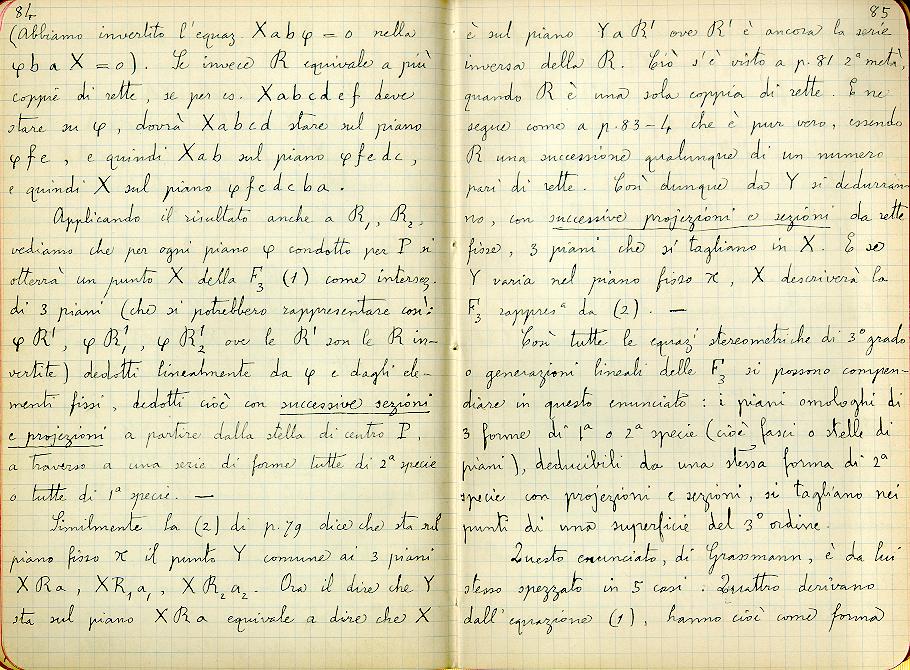 84
(Abbiamo invertito l'equaz. Xabφ = 0 nella
φbaX = 0). Se invece R equivale a più
coppie di rette, se per es. Xabcdef deve
stare su φ, dovrà Xabcd stare sul piano
φfe, e quindi Xab sul piano φfedc,
e quindi X sul piano φfedcba.
Applicando il risultato anche a R₁, R₂,
vediamo che per ogni piano φ condotto per P si
otterrà un punto X della F₃ (1) come intersez.
di 3 piani (che si potrebbero rappresentare così:
φR', φR'₁, φR'₂ ove le R' son le R in-
vertite) dedotti linearmente da φ e dagli ele-
menti fissi, dedotti cioè con successive sezioni
e projezioni a partire dalla stella di centro P,
a traverso a una serie di forme tutte di 2ª specie
o tutte di 1ª specie. —
Similmente la (2) di p. 79 dice che sta sul
piano fisso π il punto Y comune ai 3 piani
XRa, XR₁a₁, XR₂a₂. Ora il dire che Y
sta sul piano XRa equivale a dire che X
85
è sul piano YaR' ove R' è ancora la serie
inversa della R. Ciò s'è visto a p. 81 2ª metà,
quando R è una sola coppia di rette. E ne
segue come a p. 83-4 che è pur vero, essendo
R una successione qualunque di un numero
pari di rette. Così dunque da Y si dedurran-
no, con successive projezioni e sezioni da rette
fisse, 3 piani che si tagliano in X. E se
Y varia nel piano fisso π, X descriverà la
F₃ rappresª da (2). —
Così tutte le equazⁱ stereometriche di 3° grado
o generazioni lineali delle F₃ si possono compen-
diare in questo enunciato: i piani omologhi di
3 forme di 1ª o 2ª specie (cioè fasci o stelle di
piani), deducibili da una stessa forma di 2ª
specie con projezioni e sezioni, si tagliano nei
punti di una superficie del 3° ordine.
Questo enunciato, di Grassmann, è da lui
stesso spezzato in 5 casi: Quattro derivano
dall'equazione (1), hanno cioè come forma